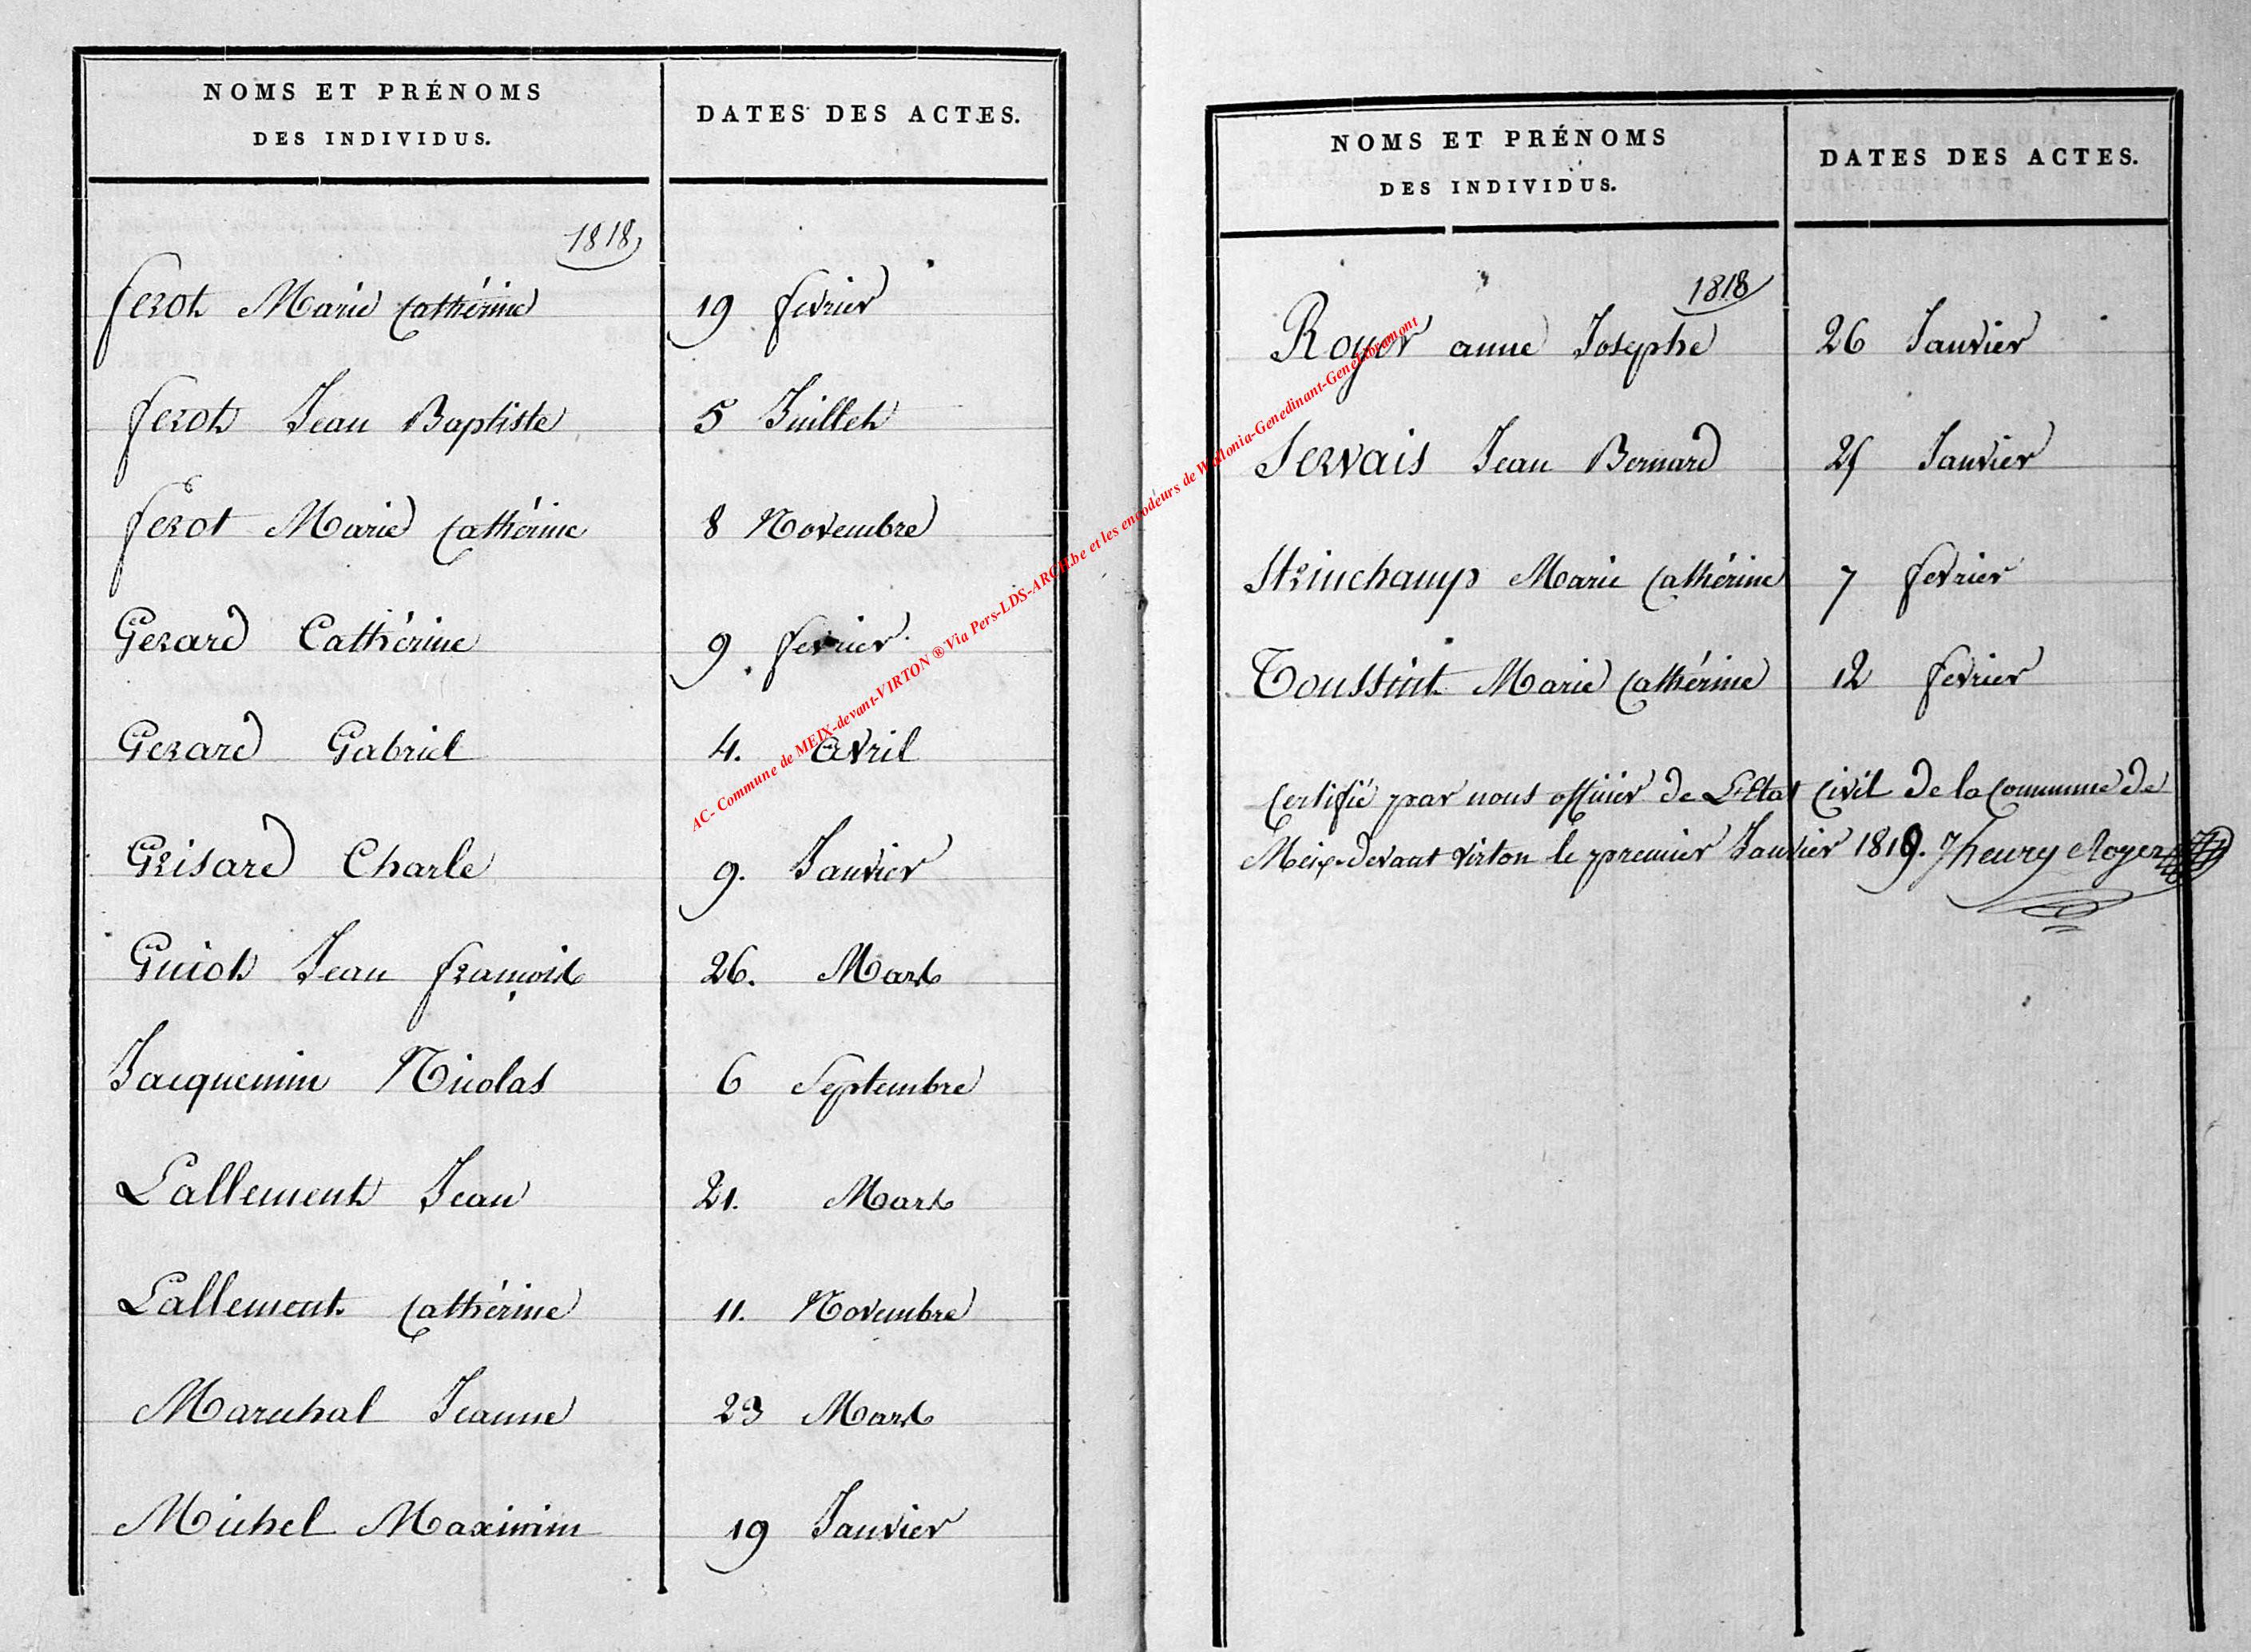 NOMS ET PRÉNOMS
DES INDIVIDUS.
DATES DES ACTES.
1818
ferot Marie Cathérine 19 fevrier
ferot Jean Baptiste 5 Juillet
ferot Marie Cathérine 8 Novembre
Gerard Cathérine 9. fevrier
Gerard Gabriel 4. Avril
Grisard Charle 9. Janvier
Guiot Jean françois 26. Mars
Jacquemin Nicolas 6 Septembre
Lallement Jean 21. Mars
Lallement Cathérine 11. Novembre
Marechal Jeanne 23 Mars
Michel Maximin 19 Janvier
NOMS ET PRÉNOMS
DES INDIVIDUS.
DATES DES ACTES.
1818
Royer anne Josephe 26 Janvier
Servais Jean Bernard Janvier
Strinchamp Marie Cathérine 7 fevrier
Toussint Marie Cathérine 12 fevrier
Certifié par nous officier de L'Etat Civil de la Commune de
Meix-devant virton le premier Janvier 1819. Royer
AC- Commune de MEIX-devant-VIRTON ® Via Pers-LDS-ARCH.be et les encodeurs de Wallonia-Genedinant-GeneLibramont